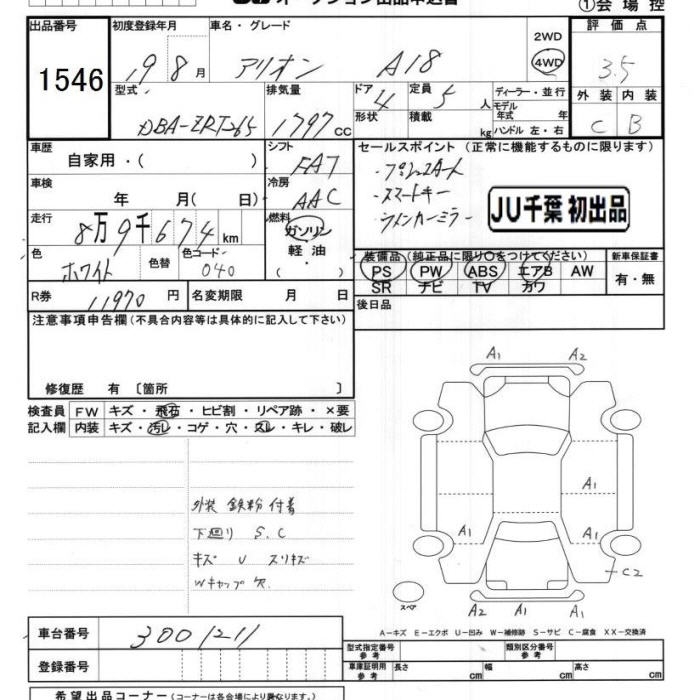 オークション出品申込書
①会場控
出品番号 初度登録年月 車名・グレード 2WD 評価点
1546 19 8月 アリオン A18 4WD 3.5
型式 排気量 ドア 4 定員 5人 ディーラー・並行 外装 内装
DBA-ZRT265 1797cc 形状 積載 kg モデル年式 年 ハンドル 左・右 C B
車歴 自家用・( ) シフト FAT セールスポイント (正常に機能するものに限ります)
・プッシュスタート
車検 年 月( 日) 冷房 AAC ・スマートキー
・ウインカーミラー
JU千葉 初出品
走行 8万9千674km 燃料 ガソリン
軽油
( )
色 ホワイト 色替 色コード 040
装備品 (純正品に限り○をつけてください) 新車保証書
PS PW ABS エアB AW 有・無
SR ナビ TV カワ
R券 11970円 名変期限 月 日 後日品
注意事項申告欄(不具合内容等は具体的に記入して下さい)
修復歴 有 〔箇所 〕
検査員 FW キズ・飛石・ヒビ割・リペア跡・×要
記入欄 内装 キズ・汚レ・コゲ・穴・スレ・キレ・破レ
外装 鉄粉付着
下廻り S.C
キズ U スリキズ
Wキャップ欠
A1 A2
A1
A1 A1
C2
スペア
A2 A1 A1
A-キズ E-エクボ U-凹み W-補修跡 S-サビ C-腐食 XX-交換済
車台番号 3001211
登録番号
型式指定番号 参考 類別区分番号 参考
車庫証明用 参考 長さ cm 幅 cm 高さ cm
希望出品コーナー(コーナーは各会場により異なります。)